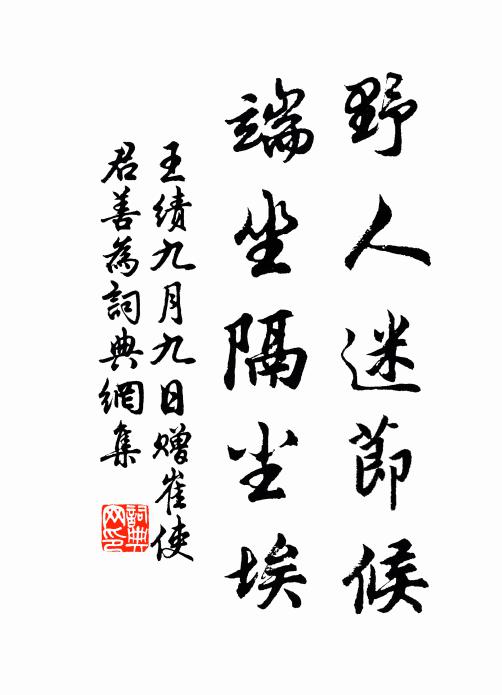 野人迷節候
端坐隔尘埃
王绩九月九日赠崔使
君善為詞典網集
詞典
网印